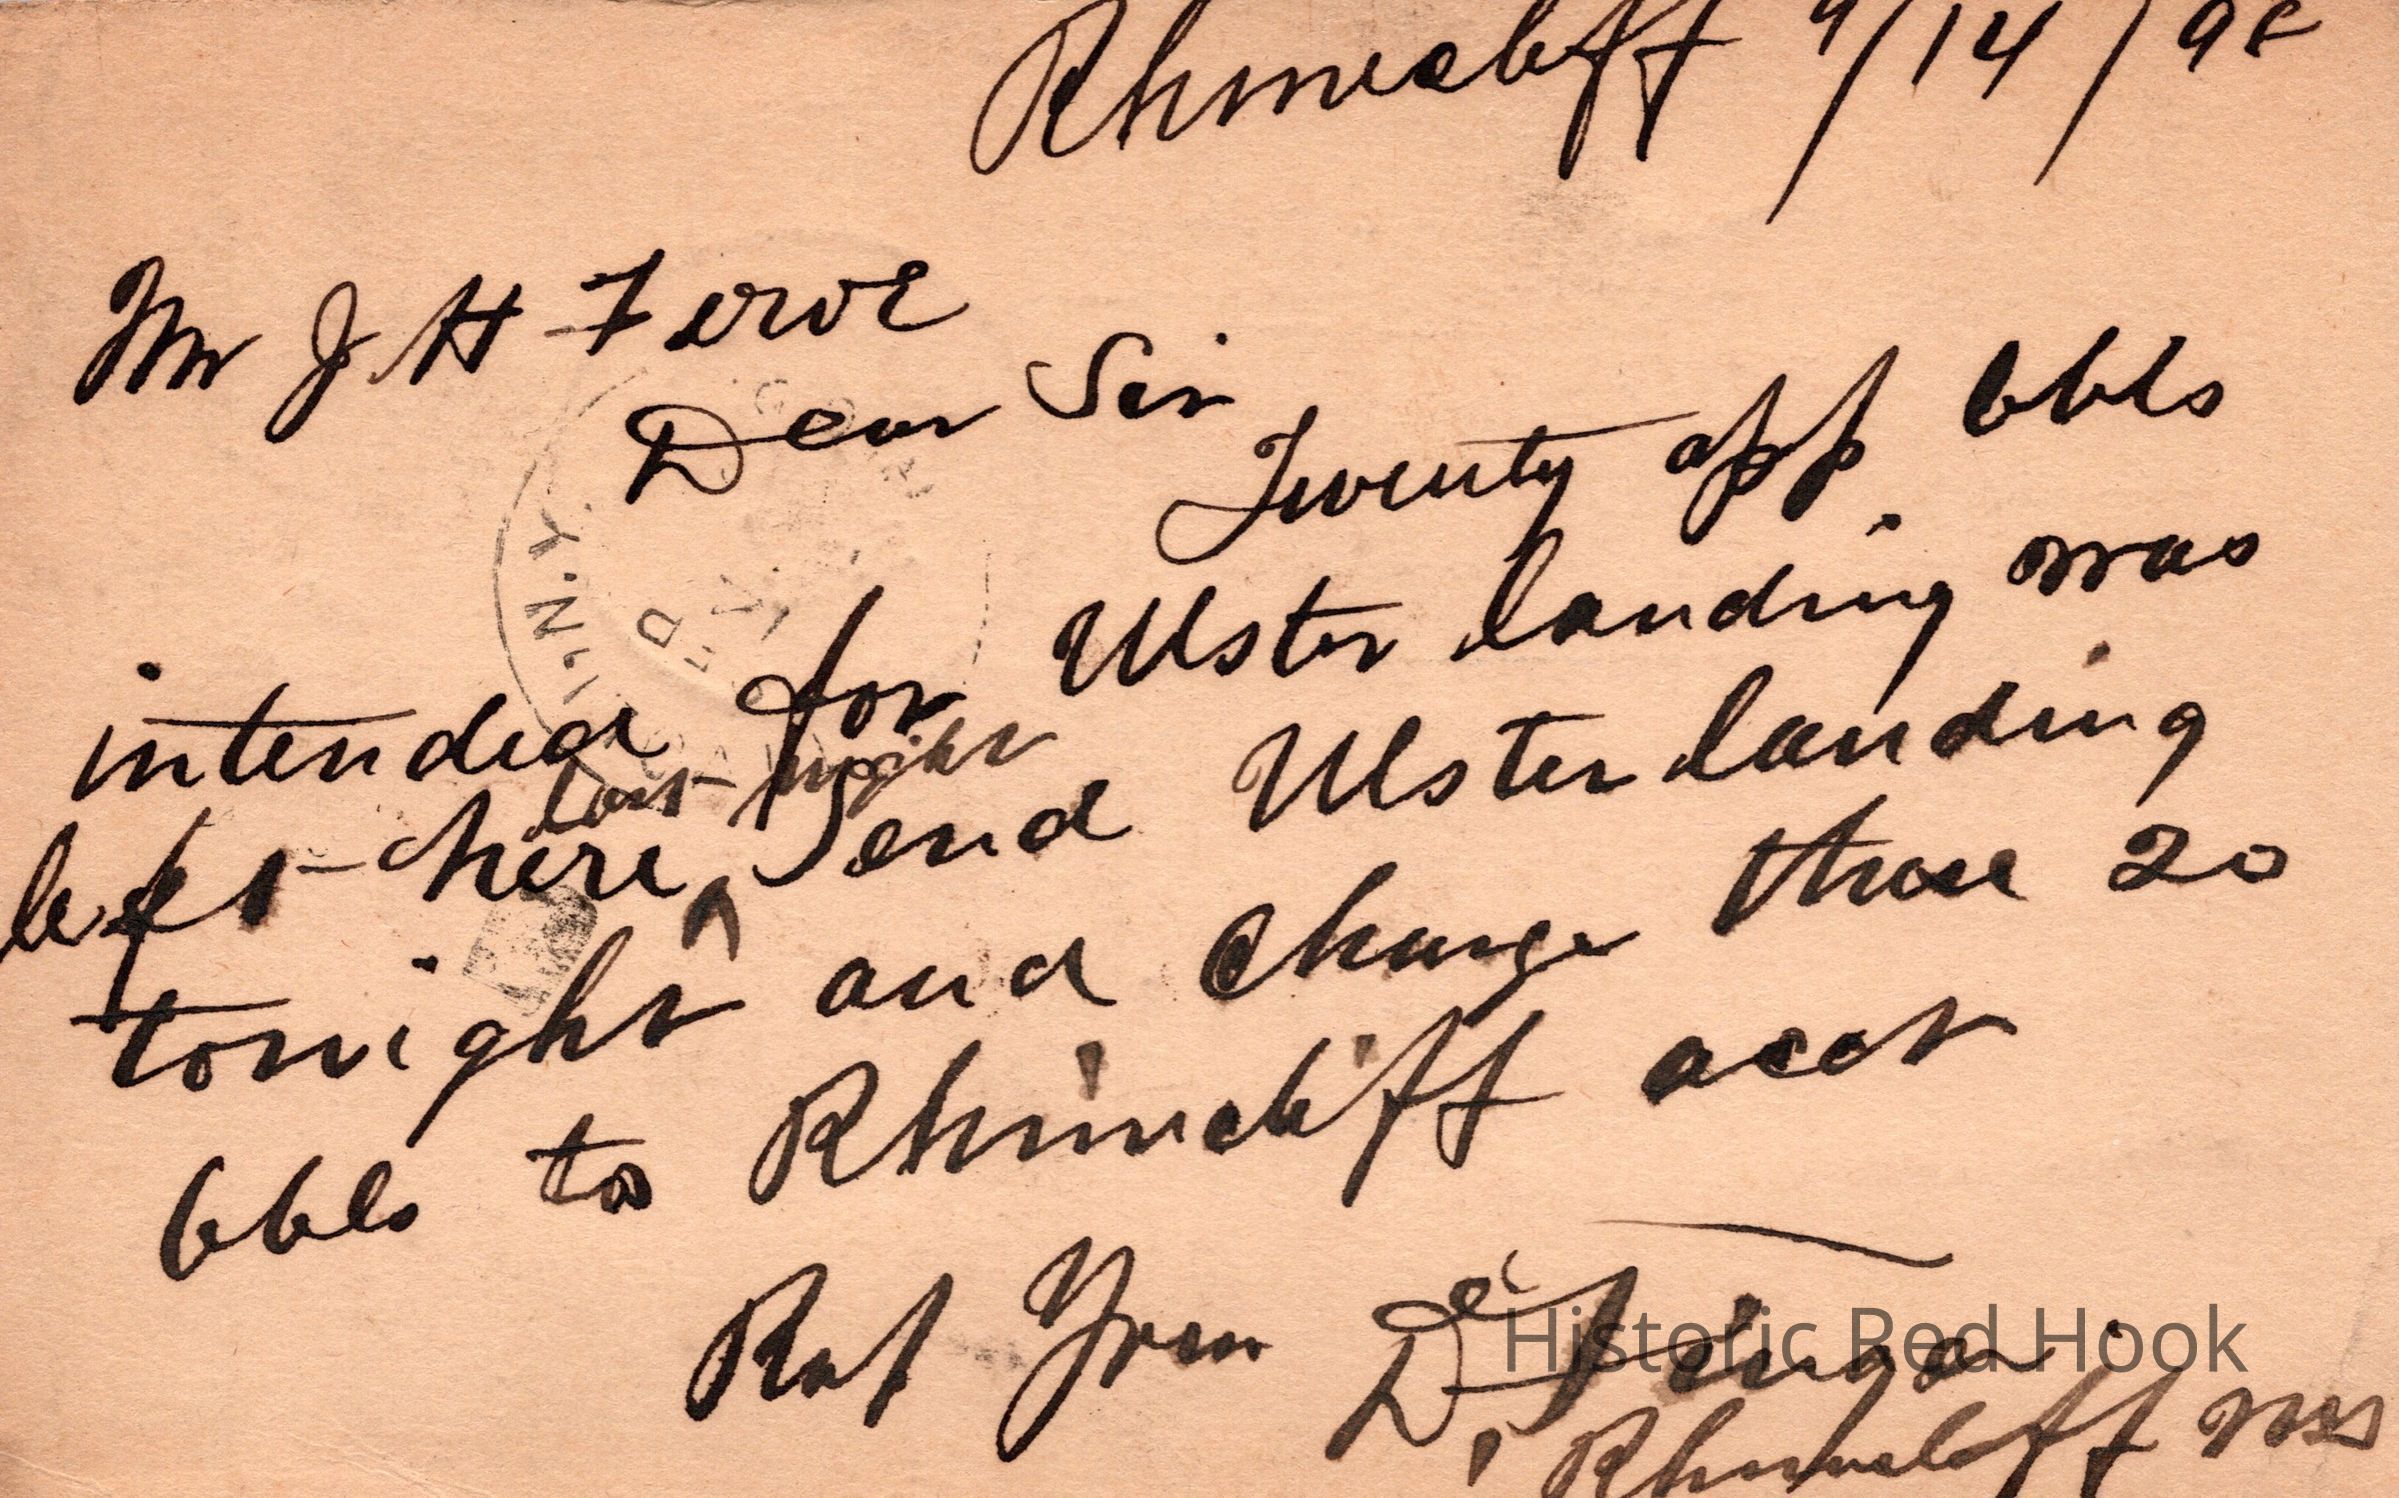 Rhinecliff 9/14/98
Mr J H Feroe
Dear Sir
Twenty app bbls
intended for Ulster landing was
last night
left here Send Ulster landing
tonight and charge those 20
bbls to Rhinecliff acct
Rsp Yrs
Historic Red Hook
Rhinecliff
N.Y.